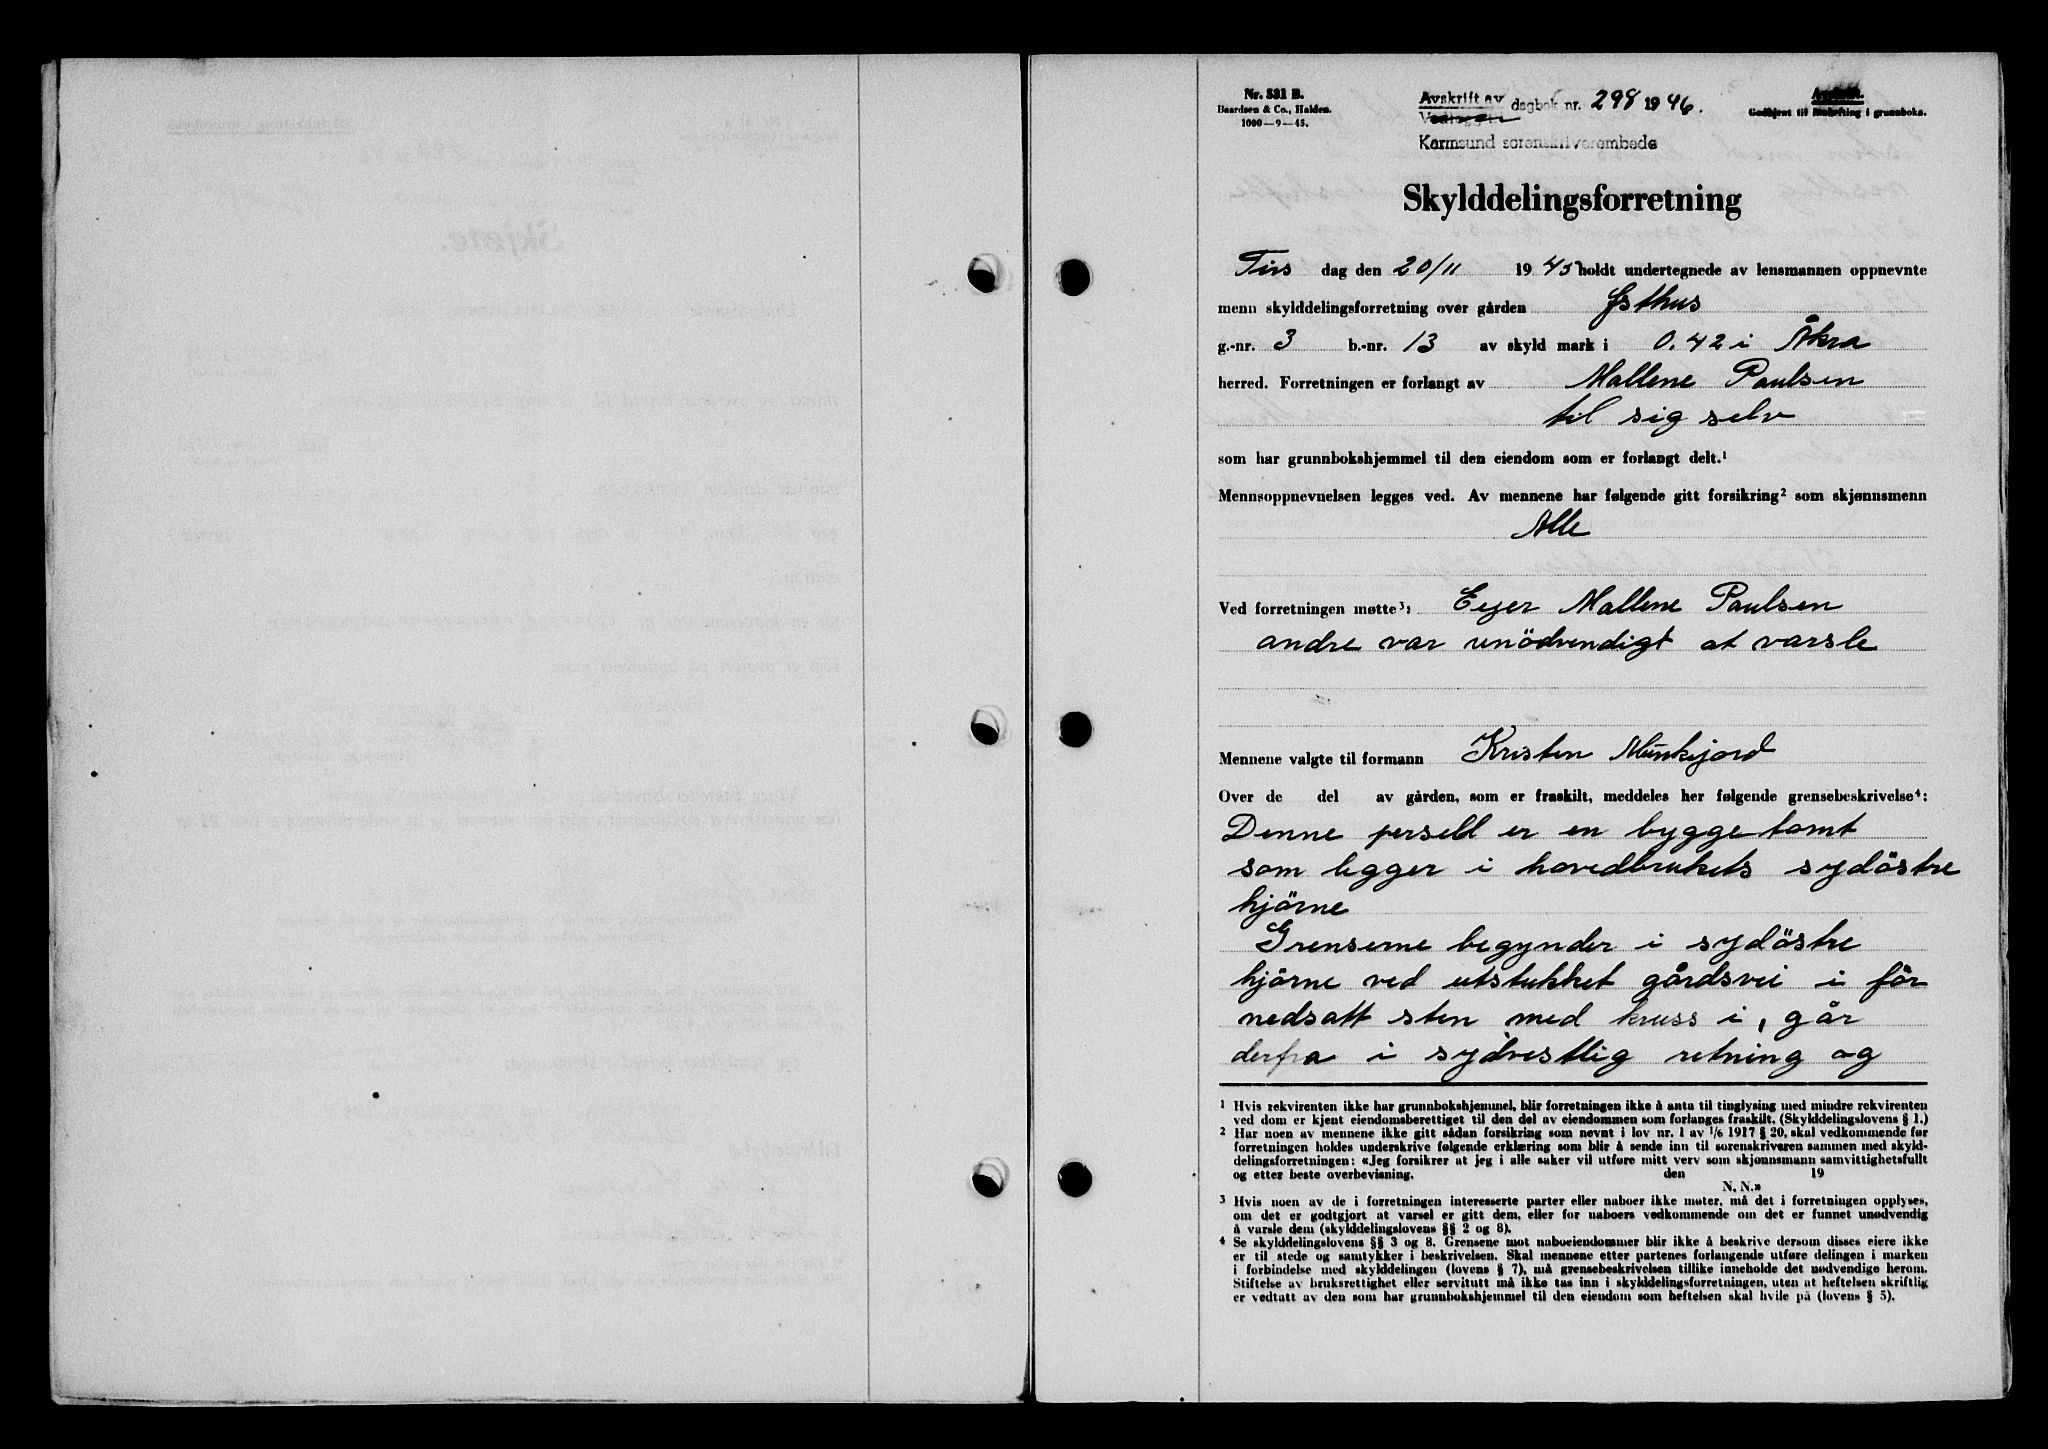 Nr. 531 B.
Baardsen & Co., Halden.
1000—9—45.
Avskrift av dagbok nr. 298 1946.
Karmsund sorenskriverembede
Avskrift.
Godkjent til innhefting i grunnboka.
Skylddelingsforretning
Tirs dag den 20/11 1945 holdt undertegnede av lensmannen oppnevnte
menn skylddelingsforretning over gården Østhus
g.-nr. 3 b.-nr. 13 av skyld mark i 0.42 i Åkra
herred. Forretningen er forlangt av Mallene Paulsen
til sig selv
som har grunnbokshjemmel til den eiendom som er forlangt delt.¹
Mennsoppnevnelsen legges ved. Av mennene har følgende gitt forsikring² som skjønnsmenn
Alle
Ved forretningen møtte³: Eejer Mallene Paulsen
andre var unödvendigt at varsle
Mennene valgte til formann Kristen Munkejord
Over de del av gården, som er fraskilt, meddeles her følgende grensebeskrivelse⁴:
Denne persell er en byggetomt
som legger i hovedbrukets sydöstre
hjörne
Grenserne begynder i sydöstre
hjörne ved utstukket gårdsvei i för
nedsatt sten med kruss i, går
derfra i sydvestlig retning og
¹ Hvis rekvirenten ikke har grunnbokshjemmel, blir forretningen ikke å anta til tinglysing med mindre rekvirenten
ved dom er kjent eiendomsberettiget til den del av eiendommen som forlanges fraskilt. (Skylddelingslovens § 1.)
² Har noen av mennene ikke gitt sådan forsikring som nevnt i lov nr. 1 av 1/6 1917 § 20, skal vedkommende før
forretningen holdes underskrive følgende erklæring som blir å sende inn til sorenskriveren sammen med skyld-
delingsforretningen: «Jeg forsikrer at jeg i alle saker vil utføre mitt verv som skjønnsmann samvittighetsfullt
og etter beste overbevisning. den 19
N. N.»
³ Hvis noen av de i forretningen interesserte parter eller naboer ikke møter, må det i forretningen opplyses,
om det er godtgjort at varsel er gitt dem, eller for naboers vedkommende om det er funnet unødvendig
å varsle dem (skylddelingslovens §§ 2 og 8).
⁴ Se skylddelingslovens §§ 3 og 8. Grensene mot naboeiendommer blir ikke å beskrive dersom disses eiere ikke
er til stede og samtykker i beskrivelsen. Skal mennene etter partenes forlangende utføre delingen i marken
i forbindelse med skylddelingen (lovens § 7), må grensebeskrivelsen tillike inneholde det nødvendige herom.
Stiftelse av bruksrettighet eller servitutt må ikke tas inn i skylddelingsforretningen, uten at heftelsen skriftlig
er vedtatt av den som har grunnbokshjemmel til den eiendom som heftelsen skal hvile på (lovens § 5).